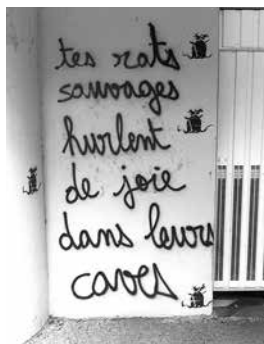 tes rats
sauvages
hurlent
de joie
dans leurs
caves